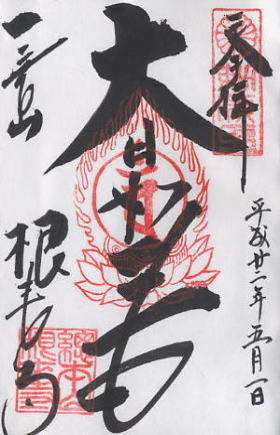 奉拝
平成廿二年五月一日
大日如来
一乗山
根来寺